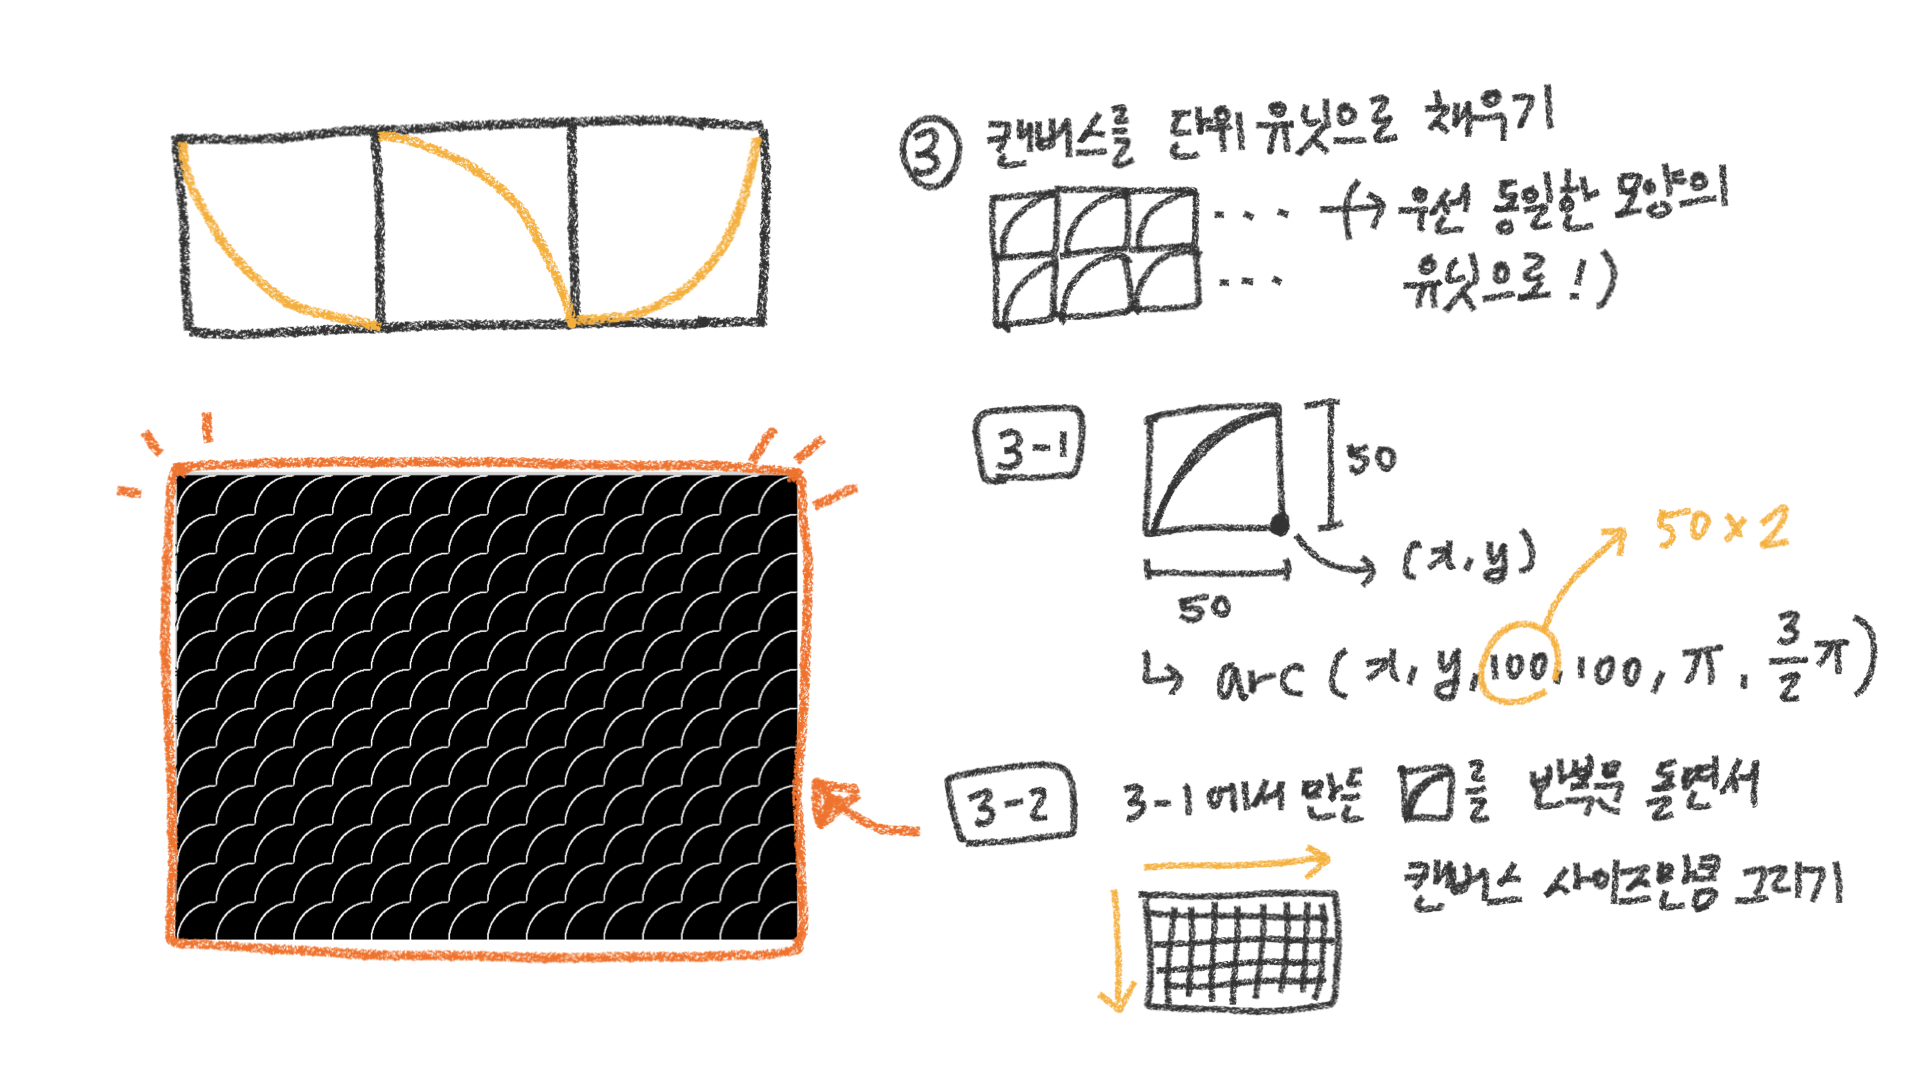 ③ 캔버스를 단위 유닛으로 채우기
... (→ 우선 동일한 모양의
... 유닛으로!)
3-1
50
50
(x, y)
50 × 2
↳ arc (x, y, 100, 100, π, 3/2 π)
3-2 3-1에서 만든 를 반복문 돌면서
캔버스 사이즈만큼 그리기